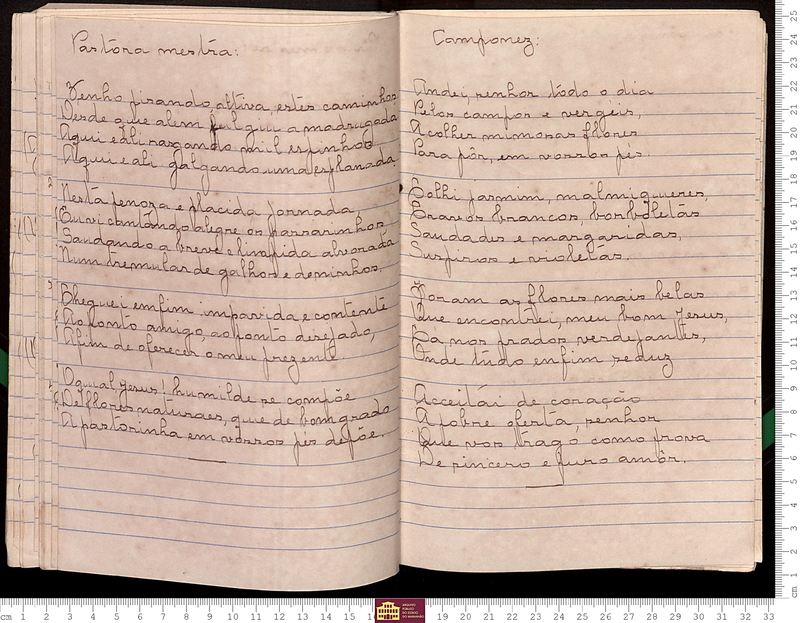 Pastora mestra:
Venho pisando, altiva, estes caminhos
Desde que alem fulgiu a madrugada
Aqui e ali rasgando mil espinhos
Aqui e ali galgando uma esplanada.
Nesta penosa e placida jornada
Ouvi cantando, alegre os passarinhos
Saudando a breve e limpida alvorada
Num tremular de galhos e de ninhos.
Cheguei emfim impavida e contente
Ao ponto amigo, ao ponto desejado,
Afim de oferecer o meu prezente
O qual, Jesus! humilde se compõe
De flores naturaes, que de bom grado
A pastorinha em vóssos pés depõe.
Camponez:
Andei, senhor todo o dia
Pelos campos e vergéis,
A colher mimosas flores
Para pôr, em vossos pés.
Colhi jasmim, malmiqueres,
Cravos brancos, borboletas
Saudades e margaridas,
Suspiros e violetas.
Foram as flores mais belas
Que encontrei, meu bom Jesus,
Lá nos prados verdejantes,
Onde tudo enfim seduz
Acceitái de coração
A pobre oferta, senhor
Que vos trago como prova
De sincero e puro amôr.